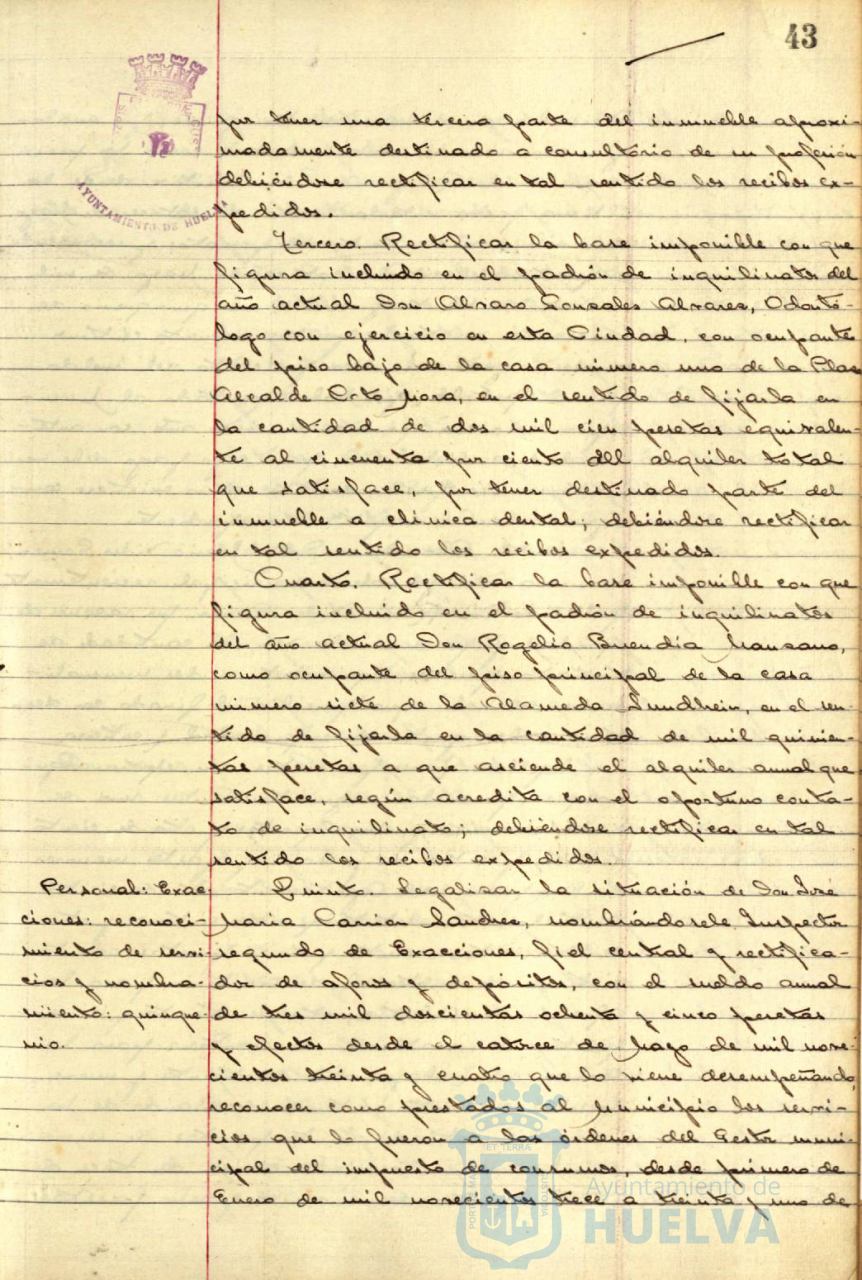 43
por tener una tercera parte del inmueble aproxi-
madamente destinado a consultorio de su profesión
debiéndose rectificar en tal sentido los recibos ex-
pedidos.
AYUNTAMIENTO DE HUELVA
Tercero. Rectificar la base imponible con que
figura incluido en el padrón de inquilinatos del
año actual Don Alvaro Gonzales Alvares, Odontó-
logo con ejercicio en esta Ciudad, con ocupante
del piso bajo de la casa número uno de la Plaza
Alcalde Mora, en el sentido de fijarla en
la cantidad de dos mil cien pesetas equivalen-
te al cincuenta por ciento del alquiler total
que satisface, por tener destinado parte del
inmueble a clínica dental; debiéndose rectificar
en tal sentido los recibos expedidos.
Cuarto. Rectificar la base imponible con que
figura incluido en el padrón de inquilinatos
del año actual Don Rogelio Buendía Manzano,
como ocupante del piso principal de la casa
número siete de la Alameda Sundhein, en el sen-
tido de fijarla en la cantidad de mil quinien-
tas pesetas a que asciende el alquiler anual que
satisface, según acredita con el oportuno contra-
to de inquilinato; debiéndose rectificar en tal
sentido los recibos expedidos.
Personal: Exac-
ciones: reconoci-
miento de servi-
cios y nombra-
miento: quinque-
nio.
Quinto. Legalizar la situación de Don José
María Carrion Sandres, nombrándosele Inspector
segundo de Exacciones, fiel central y rectifica-
dor de aforos y depósitos, con el sueldo anual
de tres mil doscientas ochenta y cinco pesetas
y efectos desde el catorce de Mayo de mil nove-
cientos treinta y cuatro que lo viene desempeñando,
reconocer como prestados al Municipio los servi-
cios que lo fueron a las órdenes del Gestor muni-
cipal del impuesto de consumos, desde primero de
Enero de mil novecientos trece a treinta y uno de
Ayuntamiento de
HUELVA